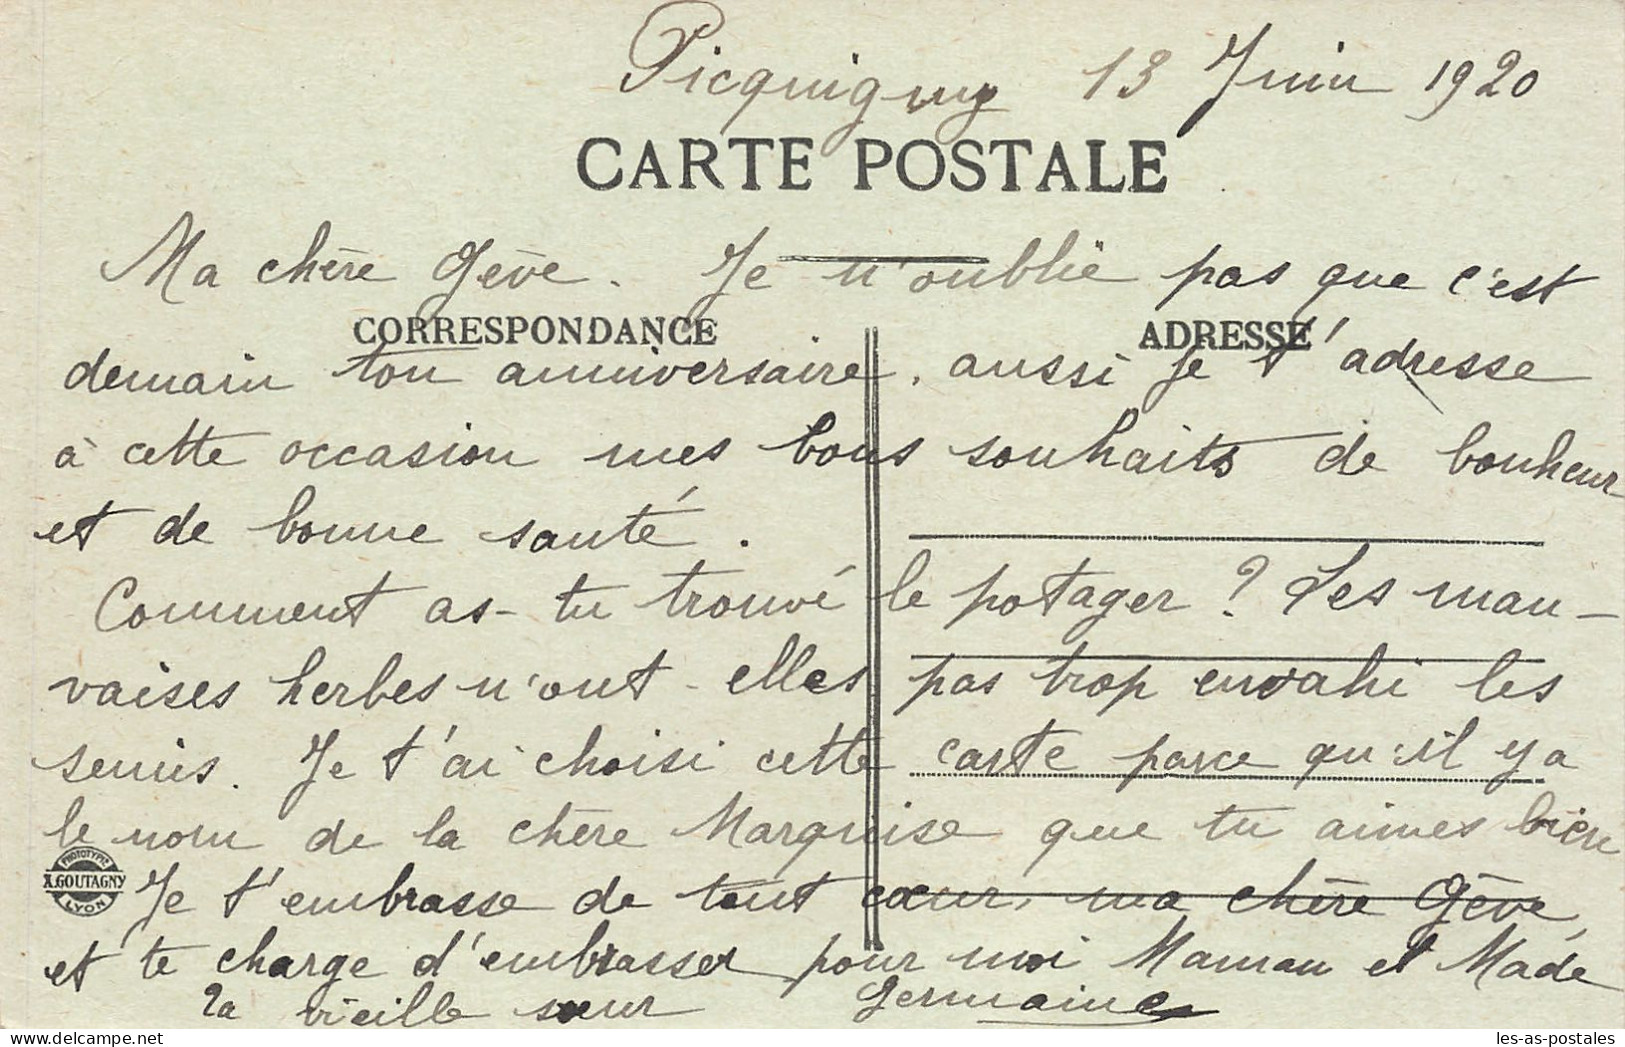 Picquigny 13 Juin 1920
CARTE POSTALE
Ma chère Gève. Je n'oublie pas que c'est
CORRESPONDANCE ADRESSE
demain ton anniversaire, aussi je t'adresse
à cette occasion mes bons souhaits de bonheur
et de bonne santé.
Comment as-tu trouvé le potager ? Les mau-
vaises herbes n'ont-elles pas trop envahi les
semis. Je t'ai choisi cette carte parce qu'il y a
le nom de la chère Marquise que tu aimes bien
PHOTOTYPIE
A. GOUTAGNY
LYON
Je t'embrasse de tout cœur, ma chère Gève,
et te charge d'embrasser pour moi Maman et Made
Ta vieille sœur Germaine
les-as-postales
delcampe.net